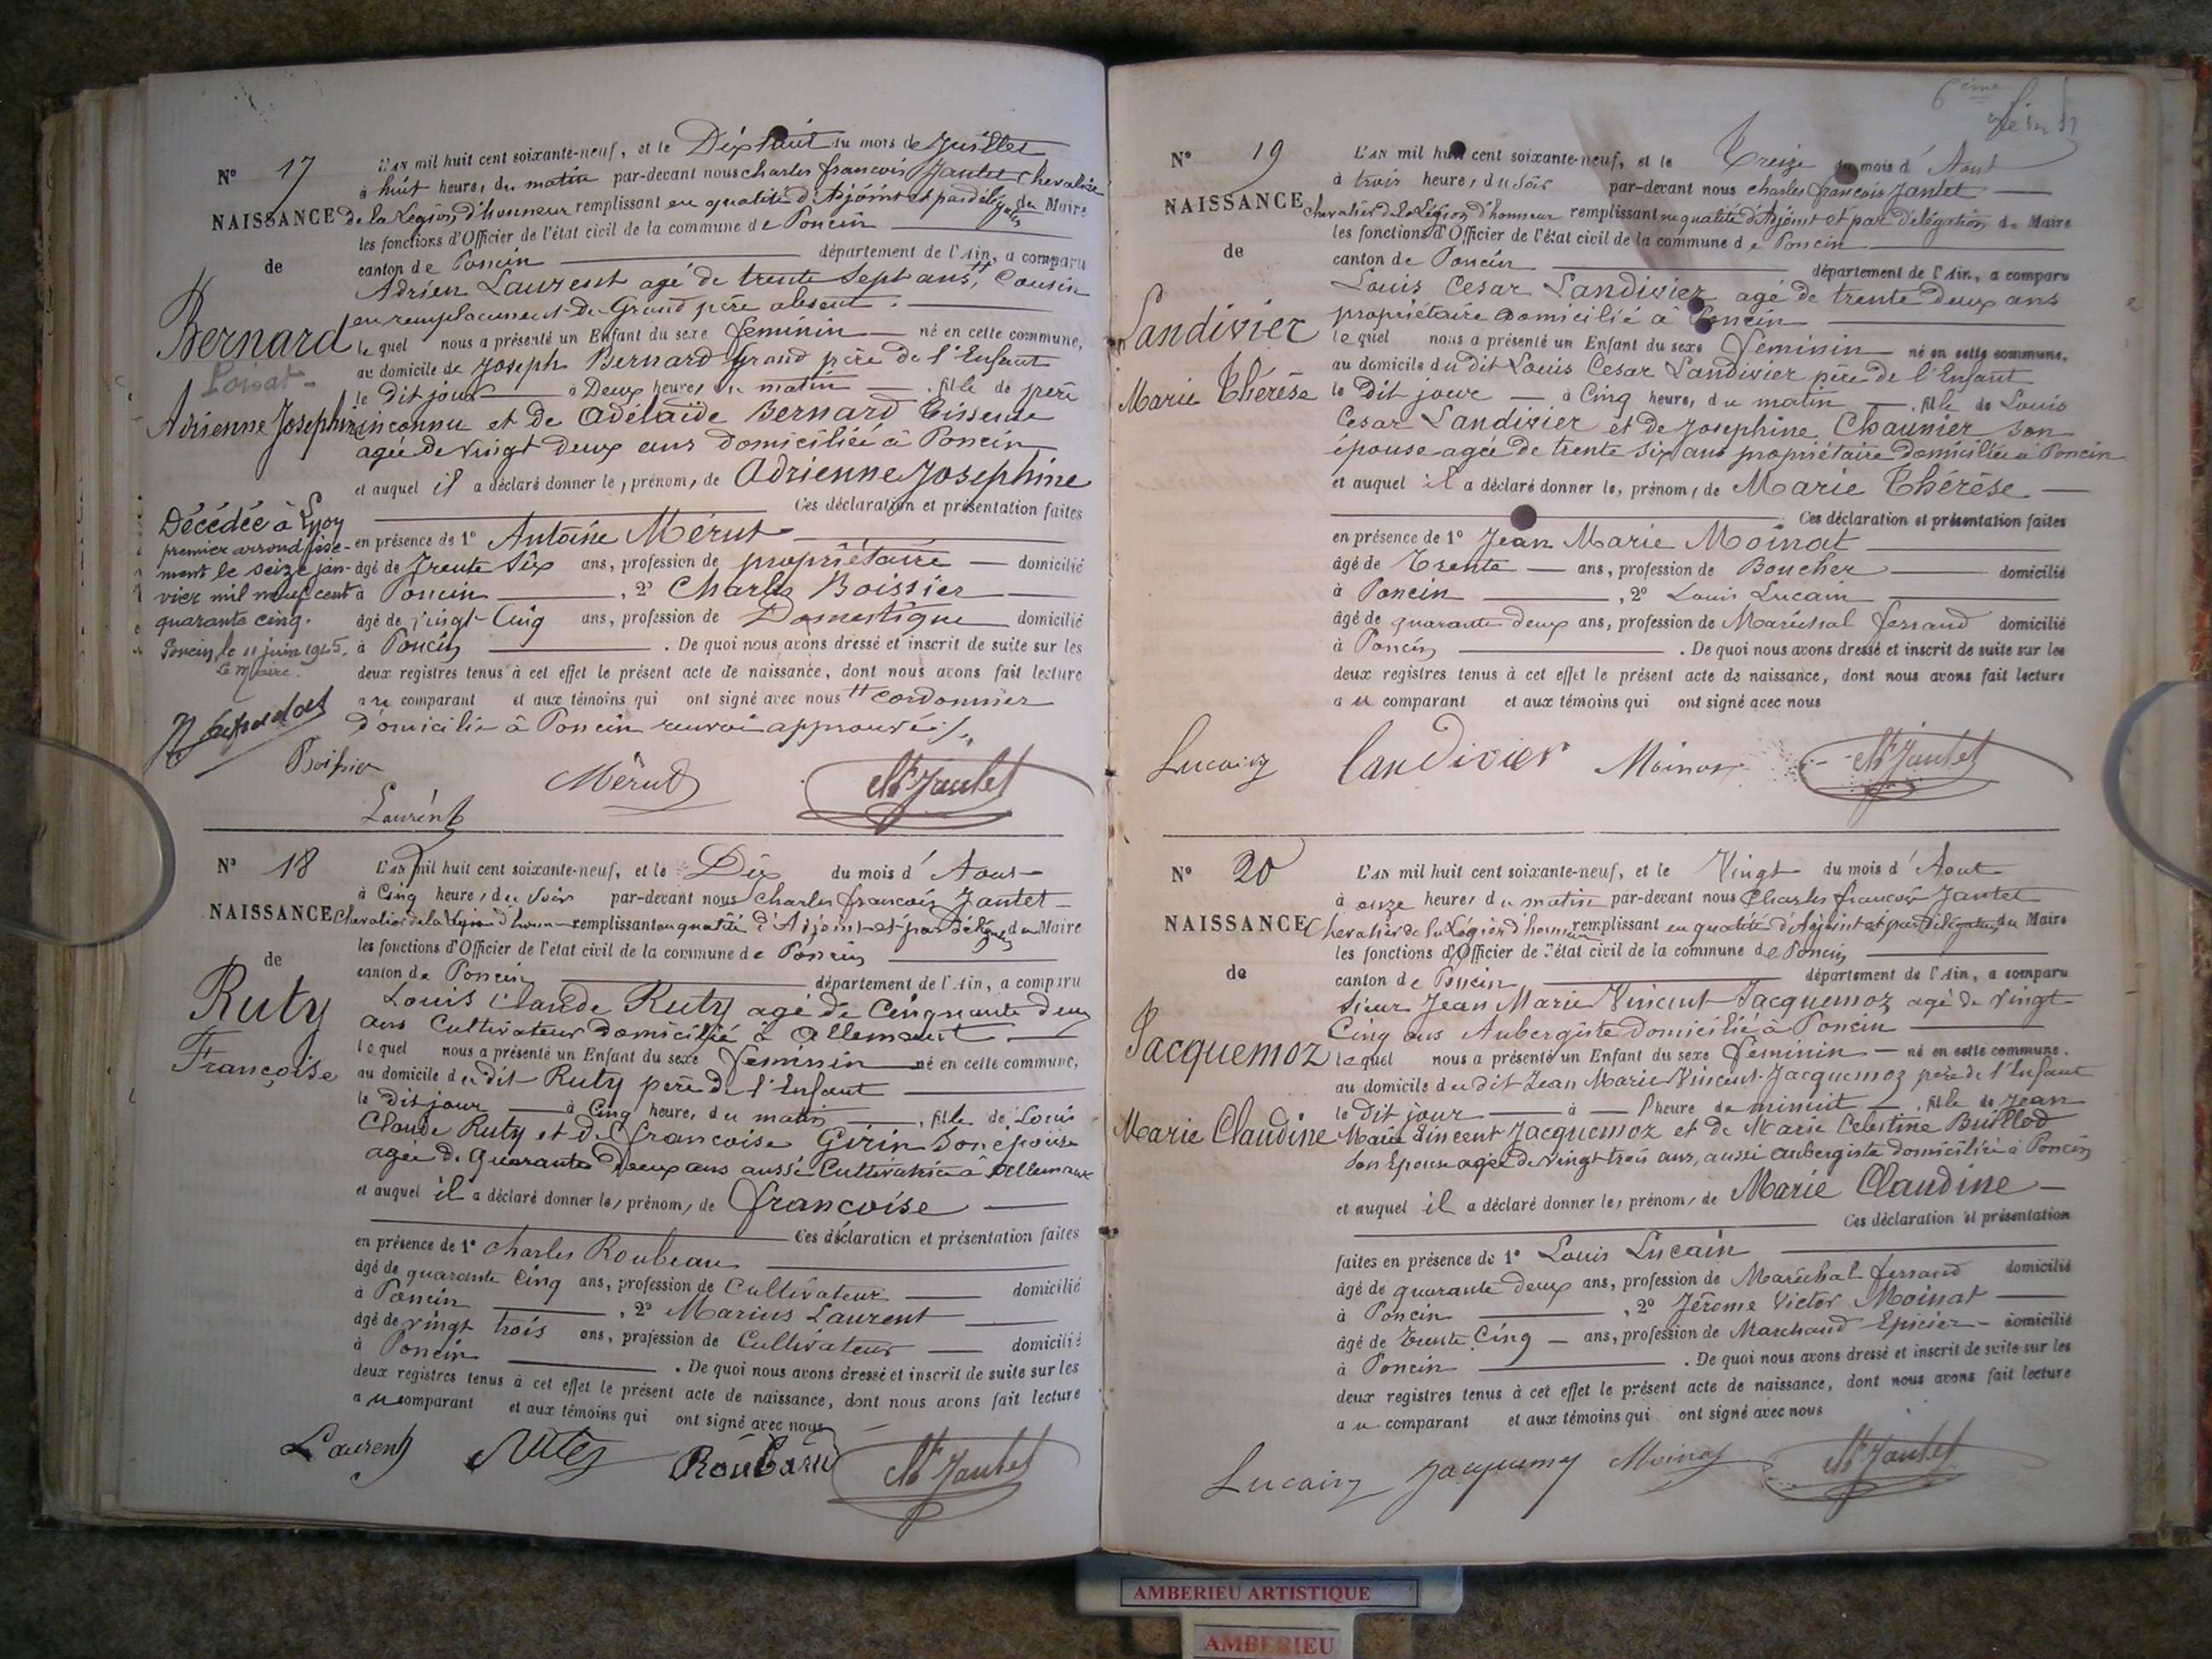 N° 17
NAISSANCE
de
Bernard
Loisat
Adrienne Josephine
Décédée à Lyon
premier arrondisse-
ment le seize jan-
vier mil neuf cent
quarante cinq.
Poncin, le 11 juin 1945.
Le Maire.
L'AN mil huit cent soixante-neuf, et le Dix huit du mois de Juillet
à huit heures, du matin par-devant nous charles françois Jantet Chevalier
de la Légion d'honneur remplissant en qualité d'Adjoint et par délégation du Maire
les fonctions d'Officier de l'état civil de la commune de Poncin
canton de Poncin département de l'Ain, a comparu
Adrien Laurent agé de trente Sept ans, tt Cousin
en remplacement du Grand père absent.
lequel nous a présenté un Enfant du sexe féminin né en cette commune,
au domicile de Joseph Bernard Grand père de l'Enfant
le dit jour à Deux heures du matin, fille de père
inconnu et de Adélaïde Bernard Tisseuse
agée de vingt deux ans domiciliée à Poncin
et auquel il a déclaré donner les prénoms de Adrienne Josephine
Ces déclaration et présentation faites
en présence de 1° Antoine Mérut
âgé de Trente Six ans, profession de propriétaire domicilié
à Poncin, 2° Charles Boissier
âgé de vingt-Cinq ans, profession de Domestique domicilié
à Poncin. De quoi nous avons dressé et inscrit de suite sur les
deux registres tenus à cet effet le présent acte de naissance, dont nous avons fait lecture
au comparant et aux témoins qui ont signé avec nous tt cordonnier
domicilié à Poncin renvoi approuvé ./.
Boissier Mérut Jantet
Laurent
N° 18
NAISSANCE
de
Ruty
Françoise
L'AN mil huit cent soixante-neuf, et le Dix du mois d'Aout
à Cinq heures, du soir par-devant nous Charles francois Jantet
Chevalier de la Légion d'honneur remplissant en qualité d'Adjoint et par délégation du Maire
les fonctions d'Officier de l'état civil de la commune de Poncin
canton de Poncin département de l'Ain, a comparu
Louis Claude Ruty agé de Cinquante deux
ans Cultivateur domicilié à Allement
lequel nous a présenté un Enfant du sexe féminin né en cette commune,
au domicile du dit Ruty père de l'Enfant
le dit jour à Cinq heures, du matin, fille de Louis
Claude Ruty et de francoise Girin Son épouse
agée de Quarante deux ans aussi Cultivatrice à Allement
et auquel il a déclaré donner les prénoms de francoise
Ces déclaration et présentation faites
en présence de 1° Charles Roubeau
âgé de quarante Cinq ans, profession de Cultivateur domicilié
à Poncin, 2° Marius Laurent
âgé de vingt trois ans, profession de Cultivateur domicilié
à Poncin. De quoi nous avons dressé et inscrit de suite sur les
deux registres tenus à cet effet le présent acte de naissance, dont nous avons fait lecture
au comparant et aux témoins qui ont signé avec nous
Laurent Jantet
6ème
N° 19
NAISSANCE
de
Landivier
Marie Thérèse
L'AN mil huit cent soixante-neuf, et le Treize du mois d'Aout
à trois heures, du Soir par-devant nous charles françois Jantet
Chevalier de la Légion d'honneur remplissant en qualité d'Adjoint et par délégation du Maire
les fonctions d'Officier de l'état civil de la commune de Poncin
canton de Poncin département de l'Ain, a comparu
Louis Cesar Landivier agé de trente deux ans
propriétaire domicilié à Poncin
lequel nous a présenté un Enfant du sexe féminin né en cette commune,
au domicile du dit Louis Cesar Landivier père de l'Enfant
le Dit jour à Cinq heures, du matin, fille de Louis
Cesar Landivier et de Josephine Chaunier son
épouse agée de trente six ans propriétaire domiciliée à Poncin
et auquel il a déclaré donner les prénoms de Marie Thérèse
Ces déclaration et présentation faites
en présence de 1° Jean Marie Moinat
âgé de Trente ans, profession de Boucher domicilié
à Poncin, 2° Louis Lucain
âgé de quarante deux ans, profession de Maréchal ferrand domicilié
à Poncin. De quoi nous avons dressé et inscrit de suite sur les
deux registres tenus à cet effet le présent acte de naissance, dont nous avons fait lecture
au comparant et aux témoins qui ont signé avec nous
Lucain Landivier Moinat Jantet
N° 20
NAISSANCE
de
Jacquemoz
Marie Claudine
L'AN mil huit cent soixante-neuf, et le Vingt du mois d'Aout
à onze heures du matin par-devant nous Charles francois Jantet
Chevalier de la Légion d'honneur remplissant en qualité d'Adjoint et par délégation du Maire
les fonctions d'Officier de l'état civil de la commune de Poncin
canton de Poncin département de l'Ain, a comparu
Sieur Jean Marie Vincent Jacquemoz agé de vingt
Cinq ans Aubergiste domicilié à Poncin
lequel nous a présenté un Enfant du sexe féminin né en cette commune.
au domicile du dit Jean Marie Vincent Jacquemoz père de l'Enfant
le dit jour à l'heure de minuit, fille de Jean
Marie Vincent Jacquemoz et de Marie Celestine Buillod
son Epouse agée de vingt trois ans, aussi aubergiste domiciliée à Poncin
et auquel il a déclaré donner les prénoms de Marie Claudine
Ces déclaration et présentation
faites en présence de 1° Louis Lucain
âgé de quarante deux ans, profession de Maréchal ferrand domicilié
à Poncin, 2° Jérome Victor Moinat
âgé de Trente Cinq ans, profession de Marchand Epicier domicilié
à Poncin. De quoi nous avons dressé et inscrit de suite sur les
deux registres tenus à cet effet le présent acte de naissance, dont nous avons fait lecture
au comparant et aux témoins qui ont signé avec nous
Lucain Moinat Jantet
AMBERIEU ARTISTIQUE
AMBERIEU